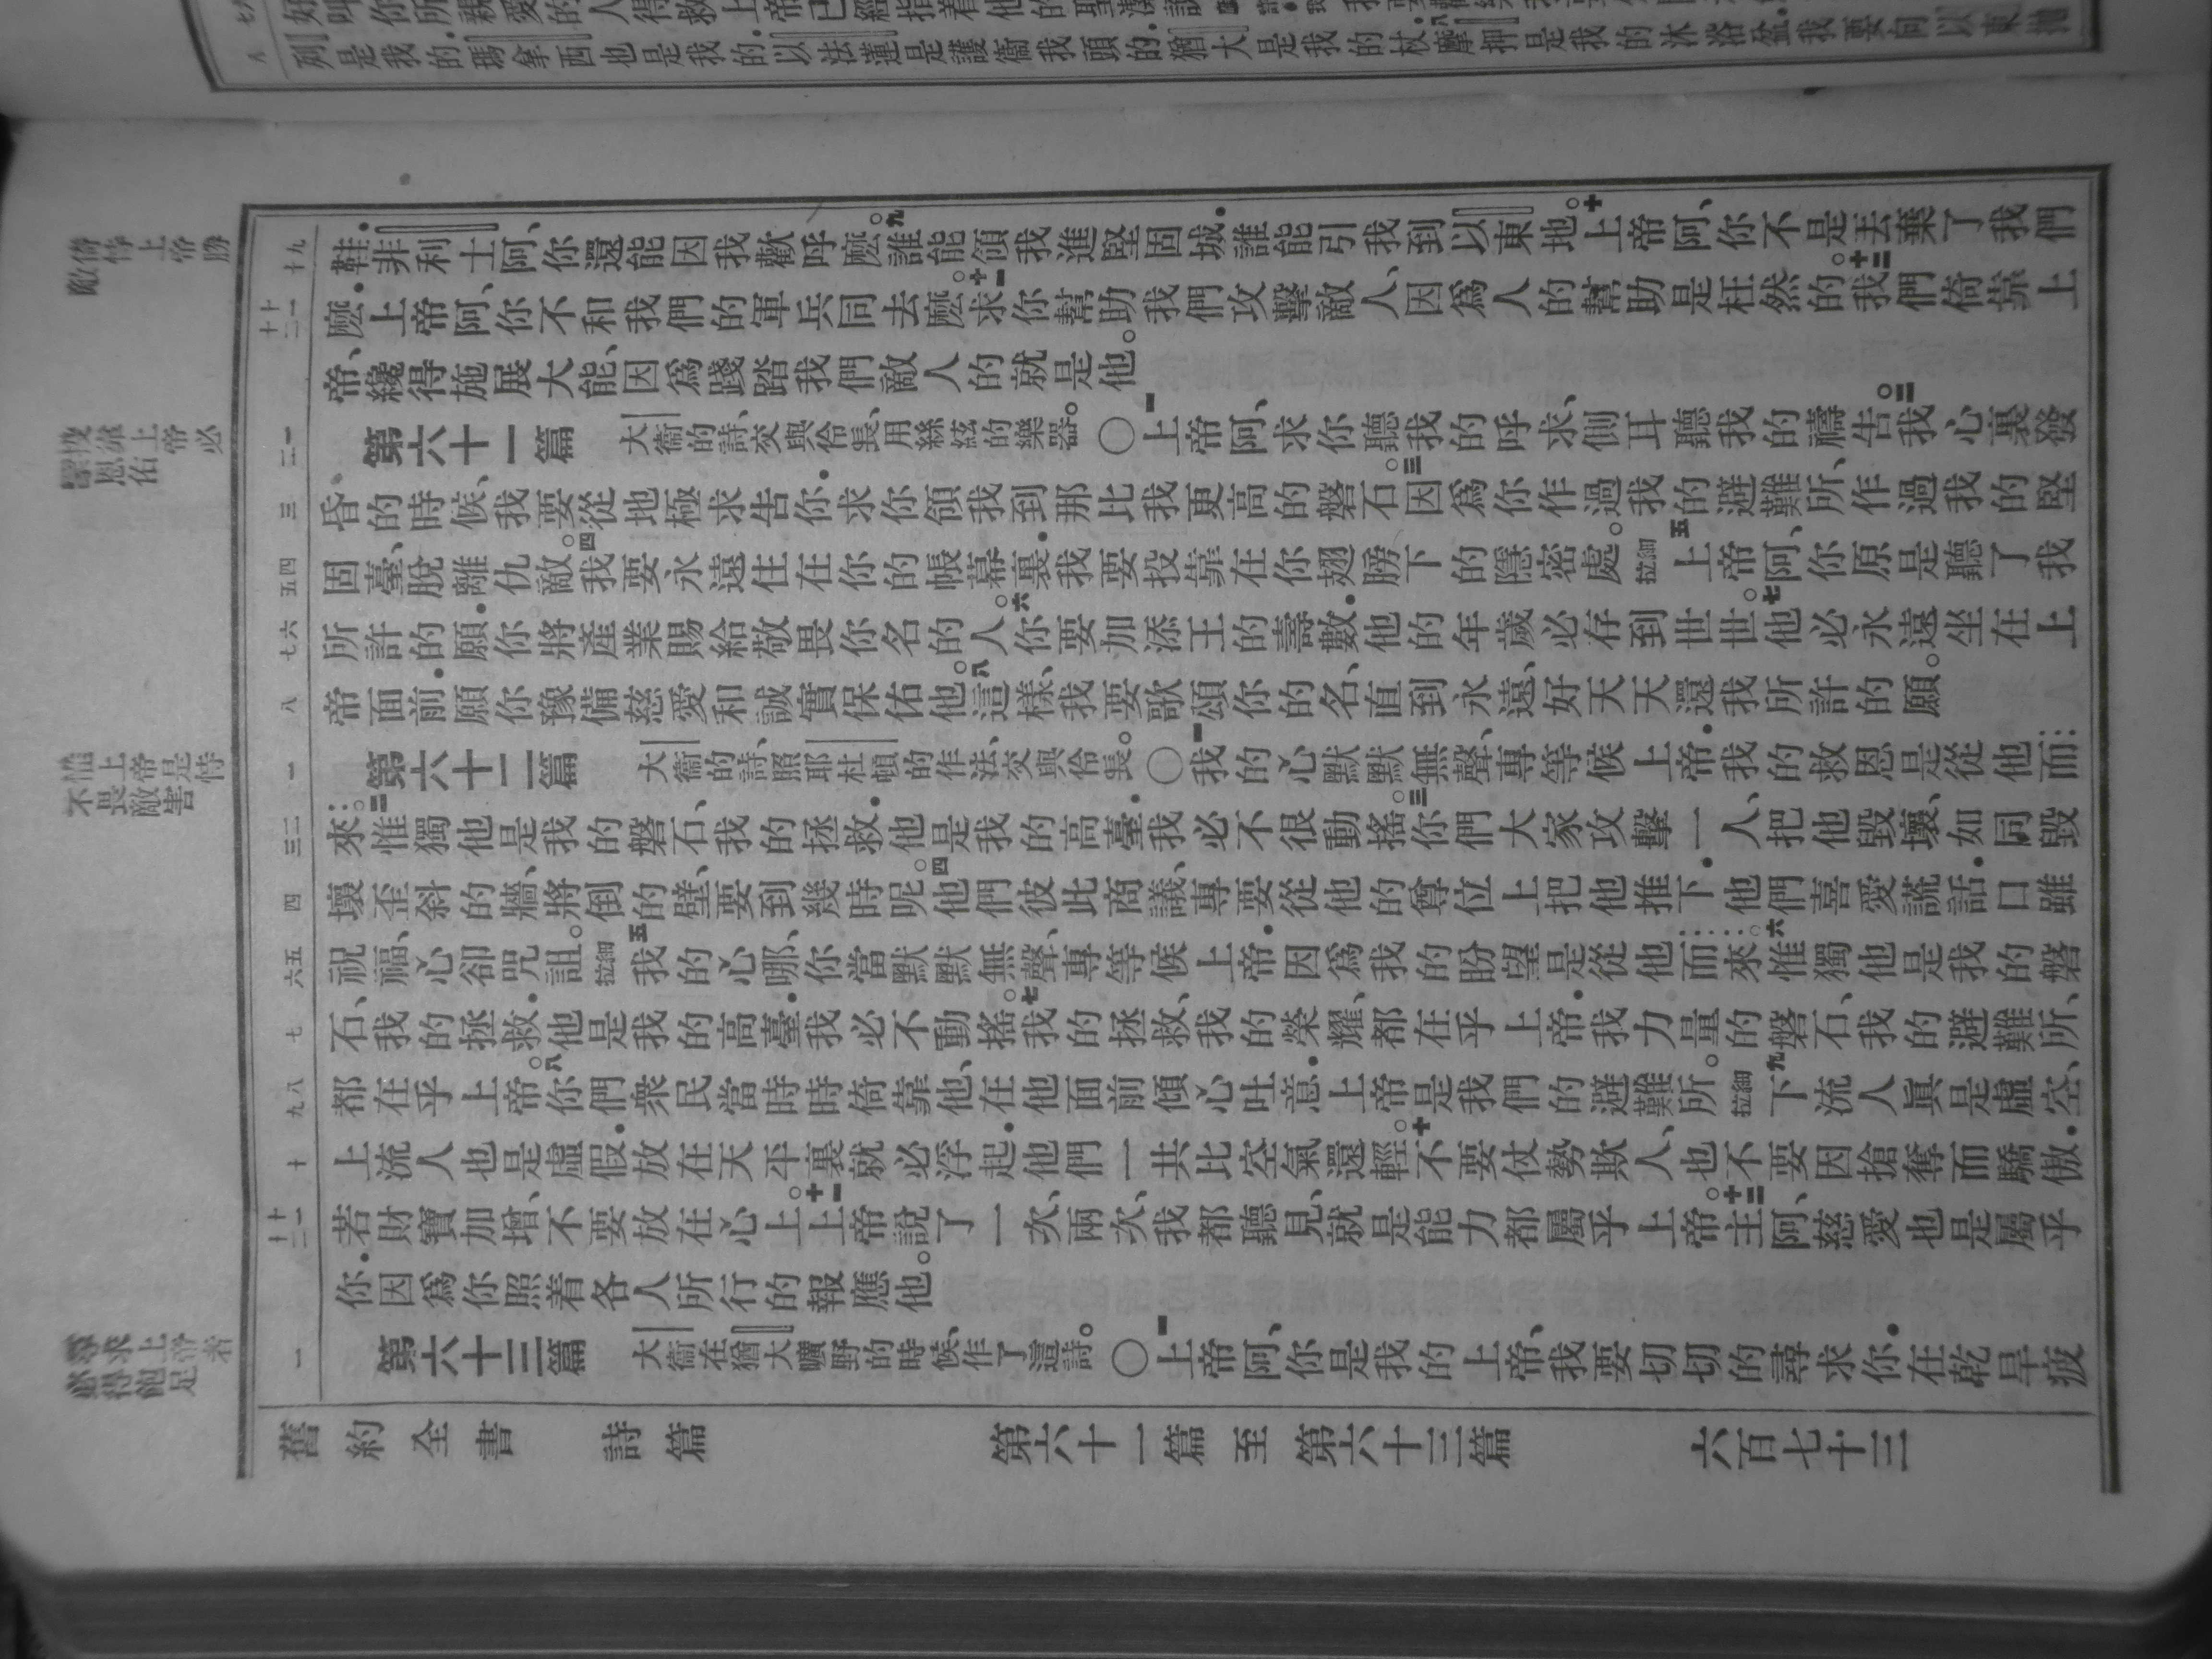 列是我的．瑪拿西也是我的．以法蓮是護衞我頭的．猶大是我的杖．摩押是我的沐浴盆．我要向以東拋
鞋．非利士阿、你還能因我歡呼麽。九誰能領我進堅固城．誰能引我到以東地。十上帝阿、你不是丟棄了我們
麽．上帝阿、你不和我們的軍兵同去麽。十一求你幫助我們攻擊敵人、因爲人的幫助是枉然的。十二我們倚靠上
帝、纔得施展大能、因爲踐踏我們敵人的就是他。
第六十一篇 大衞的詩、交與伶長、用絲絃的樂器。〇一上帝阿、求你聽我的呼求、側耳聽我的禱告。二我心裏發
昏的時候、我要從地極求告你．求你領我到那比我更高的磐石。三因爲你作過我的避難所、作過我的堅
固臺、脫離仇敵。四我要永遠住在你的帳幕裏．我要投靠在你翅膀下的隱密處。細拉五上帝阿、你原是聽了我
所許的願．你將產業賜給敬畏你名的人。六你要加添王的壽數．他的年歲必存到世世。七他必永遠坐在上
帝面前．願你豫備慈愛和誠實保佑他。八這樣、我要歌頌你的名、直到永遠、好天天還我所許的願。
第六十二篇 大衞的詩、照耶杜頓的作法、交與伶長。〇一我的心默默無聲、專等候上帝．我的救恩是從他而
來。二惟獨他是我的磐石、我的拯救．他是我的高臺．我必不很動搖。三你們大家攻擊一人、把他毀壞、如同毀
壞歪斜的牆、將倒的壁、要到幾時呢。四他們彼此商議、專要從他的尊位上把他推下．他們喜愛謊話．口雖
祝福、心卻咒詛。細拉五我的心哪、你當默默無聲、專等候上帝．因爲我的盼望是從他而來。六惟獨他是我的磐
石、我的拯救．他是我的高臺．我必不動搖。七我的拯救、我的榮耀、都在乎上帝．我力量的磐石、我的避難所、
都在乎上帝。八你們衆民當時時倚靠他、在他面前傾心吐意．上帝是我們的避難所。細拉九下流人眞是虛空、
上流人也是虛假．放在天平裏就必浮起．他們一共比空氣還輕。十不要仗勢欺人、也不要因搶奪而驕傲．
若財寶加增、不要放在心上。十一上帝說了一次、兩次、我都聽見、就是能力都屬乎上帝。十二主阿、慈愛也是屬乎
你．因爲你照着各人所行的報應他。
第六十三篇 大衞在猶大曠野的時候、作了這詩。〇一上帝阿、你是我的上帝、我要切切的尋求你．在乾旱疲
舊約全書 詩篇 第六十一篇至第六十三篇 六百七十三
倚恃上帝勝
敵
投靠上帝必
恩佑
惟上帝是恃
不畏敵害
尋求上帝者
必得飽足